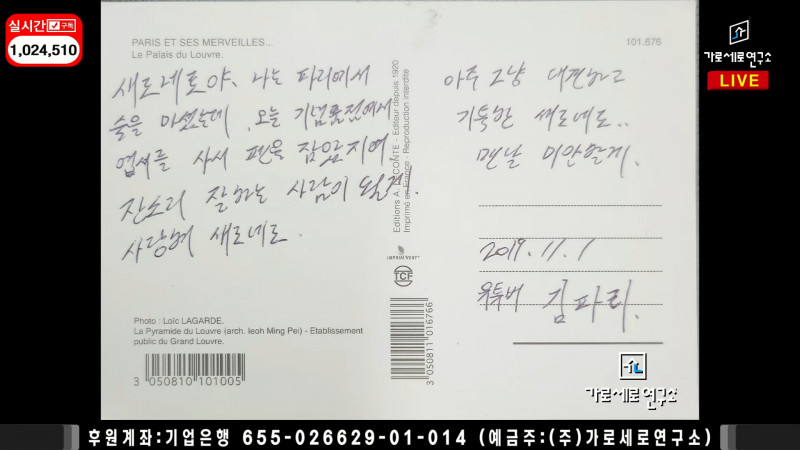 실시간 구독
1,024,510
가로세로연구소
LIVE
PARIS ET SES MERVEILLES...
Le Palais du Louvre.
101.676
새로네로야. 나는 파리에서
술을 마셨는데, 오늘 기념품점에서
엽서를 사서 펜을 잡았지에.
잔소리 잘하는 사람이 될게.
사랑해 새로네로.
Editions A. CONTE - Editeur depuis 1920
Imprimé en France - Reproduction interdite
IMPRIM'VERT
TCF
아주 그냥 대견하고
기특한 새로네로..
맨날 미안할게.
2019. 11. 1
유튜버 김파리.
Photo : Loïc LAGARDE.
La Pyramide du Louvre (arch. Ieoh Ming Pei) - Etablissement
public du Grand Louvre.
3 050810 101005
3 050811 016766
가로세로연구소
후원계좌:기업은행 655-026629-01-014 (예금주:(주)가로세로연구소)